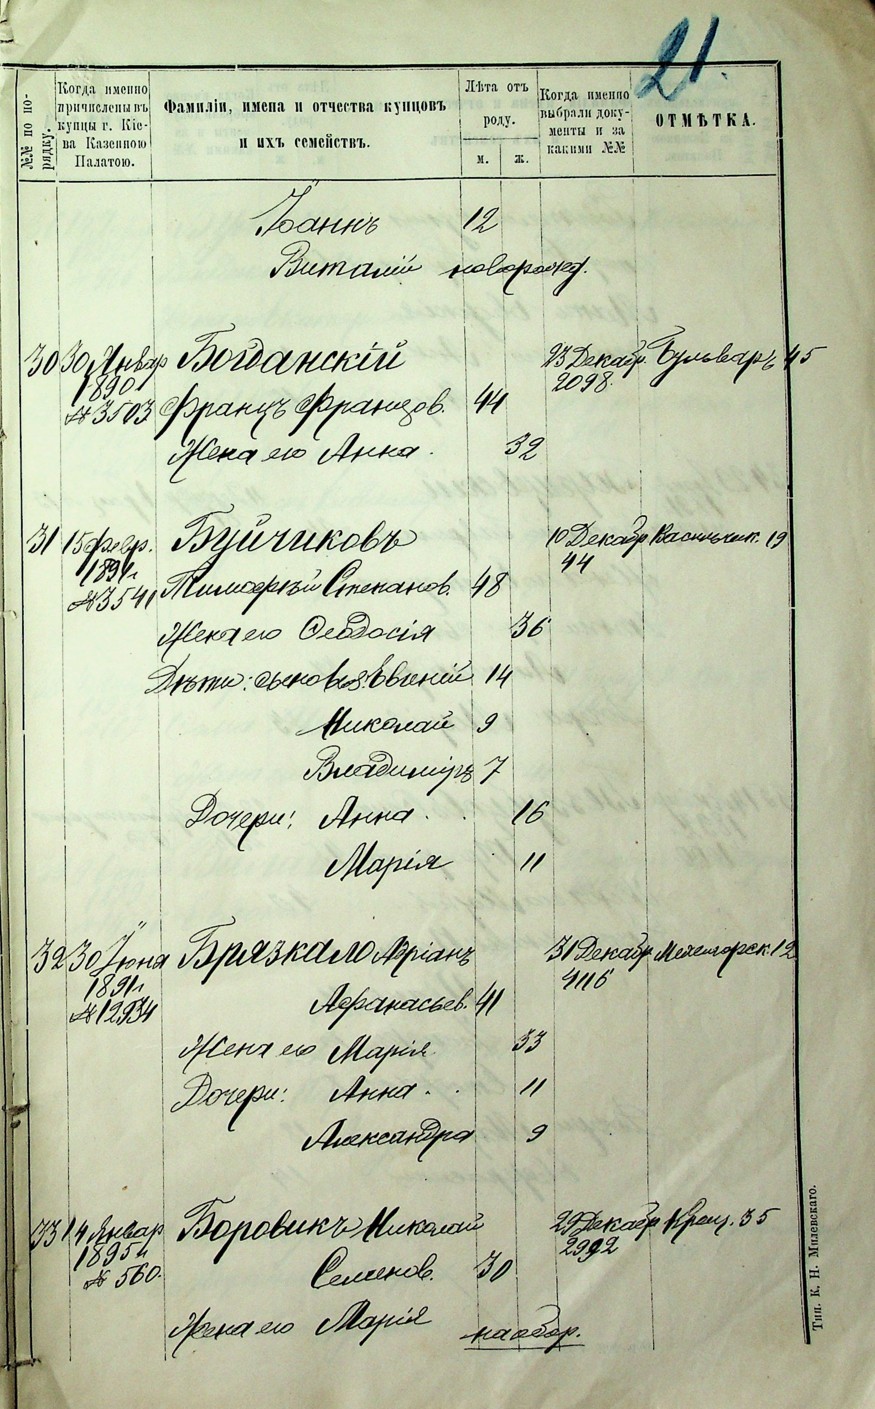 21.
№№ по по-
рядку.
Когда именно
причислены въ
купцы г. Кіе-
ва Казенною
Палатою.
Фамиліи, имена и отчества купцовъ
и ихъ семействъ.
Лѣта отъ
роду.
м. ж.
Когда именно
выбрали доку-
менты и за
какими №№
ОТМѢТКА.
Іоаннъ 12
Виталій новорожд.
30 30 Январ Богданскій 23 Декабр. Бульваръ 45
1890 2098.
№ 3503 Францъ Францов. 44
Жена его Анна. 32
31 15 февр. Буйчиковъ 10 Декабр Васильк. 19
1891 г 44
№ 3541 Тимофѣй Степанов. 48
Жена его Ѳеодосія 36
Дѣти: сыновья: Евгеній 14
Николай 9
Владиміръ 7
Дочери: Анна. 16
Марія 11
32 30 Іюня Брязкало Адріанъ 31 Декабр 12
1891 г 4116
№ 12934 Афанасьев. 41
Жена его Марія 33
Дочери: Анна. 11
Александра 9
33 14 Январ Боровикъ Николай 29 Декабр Крещ. 35
1895 г 2992
№ 560. Семенов. 30
Жена его Марія
Тип. К. Н. Милевскаго.